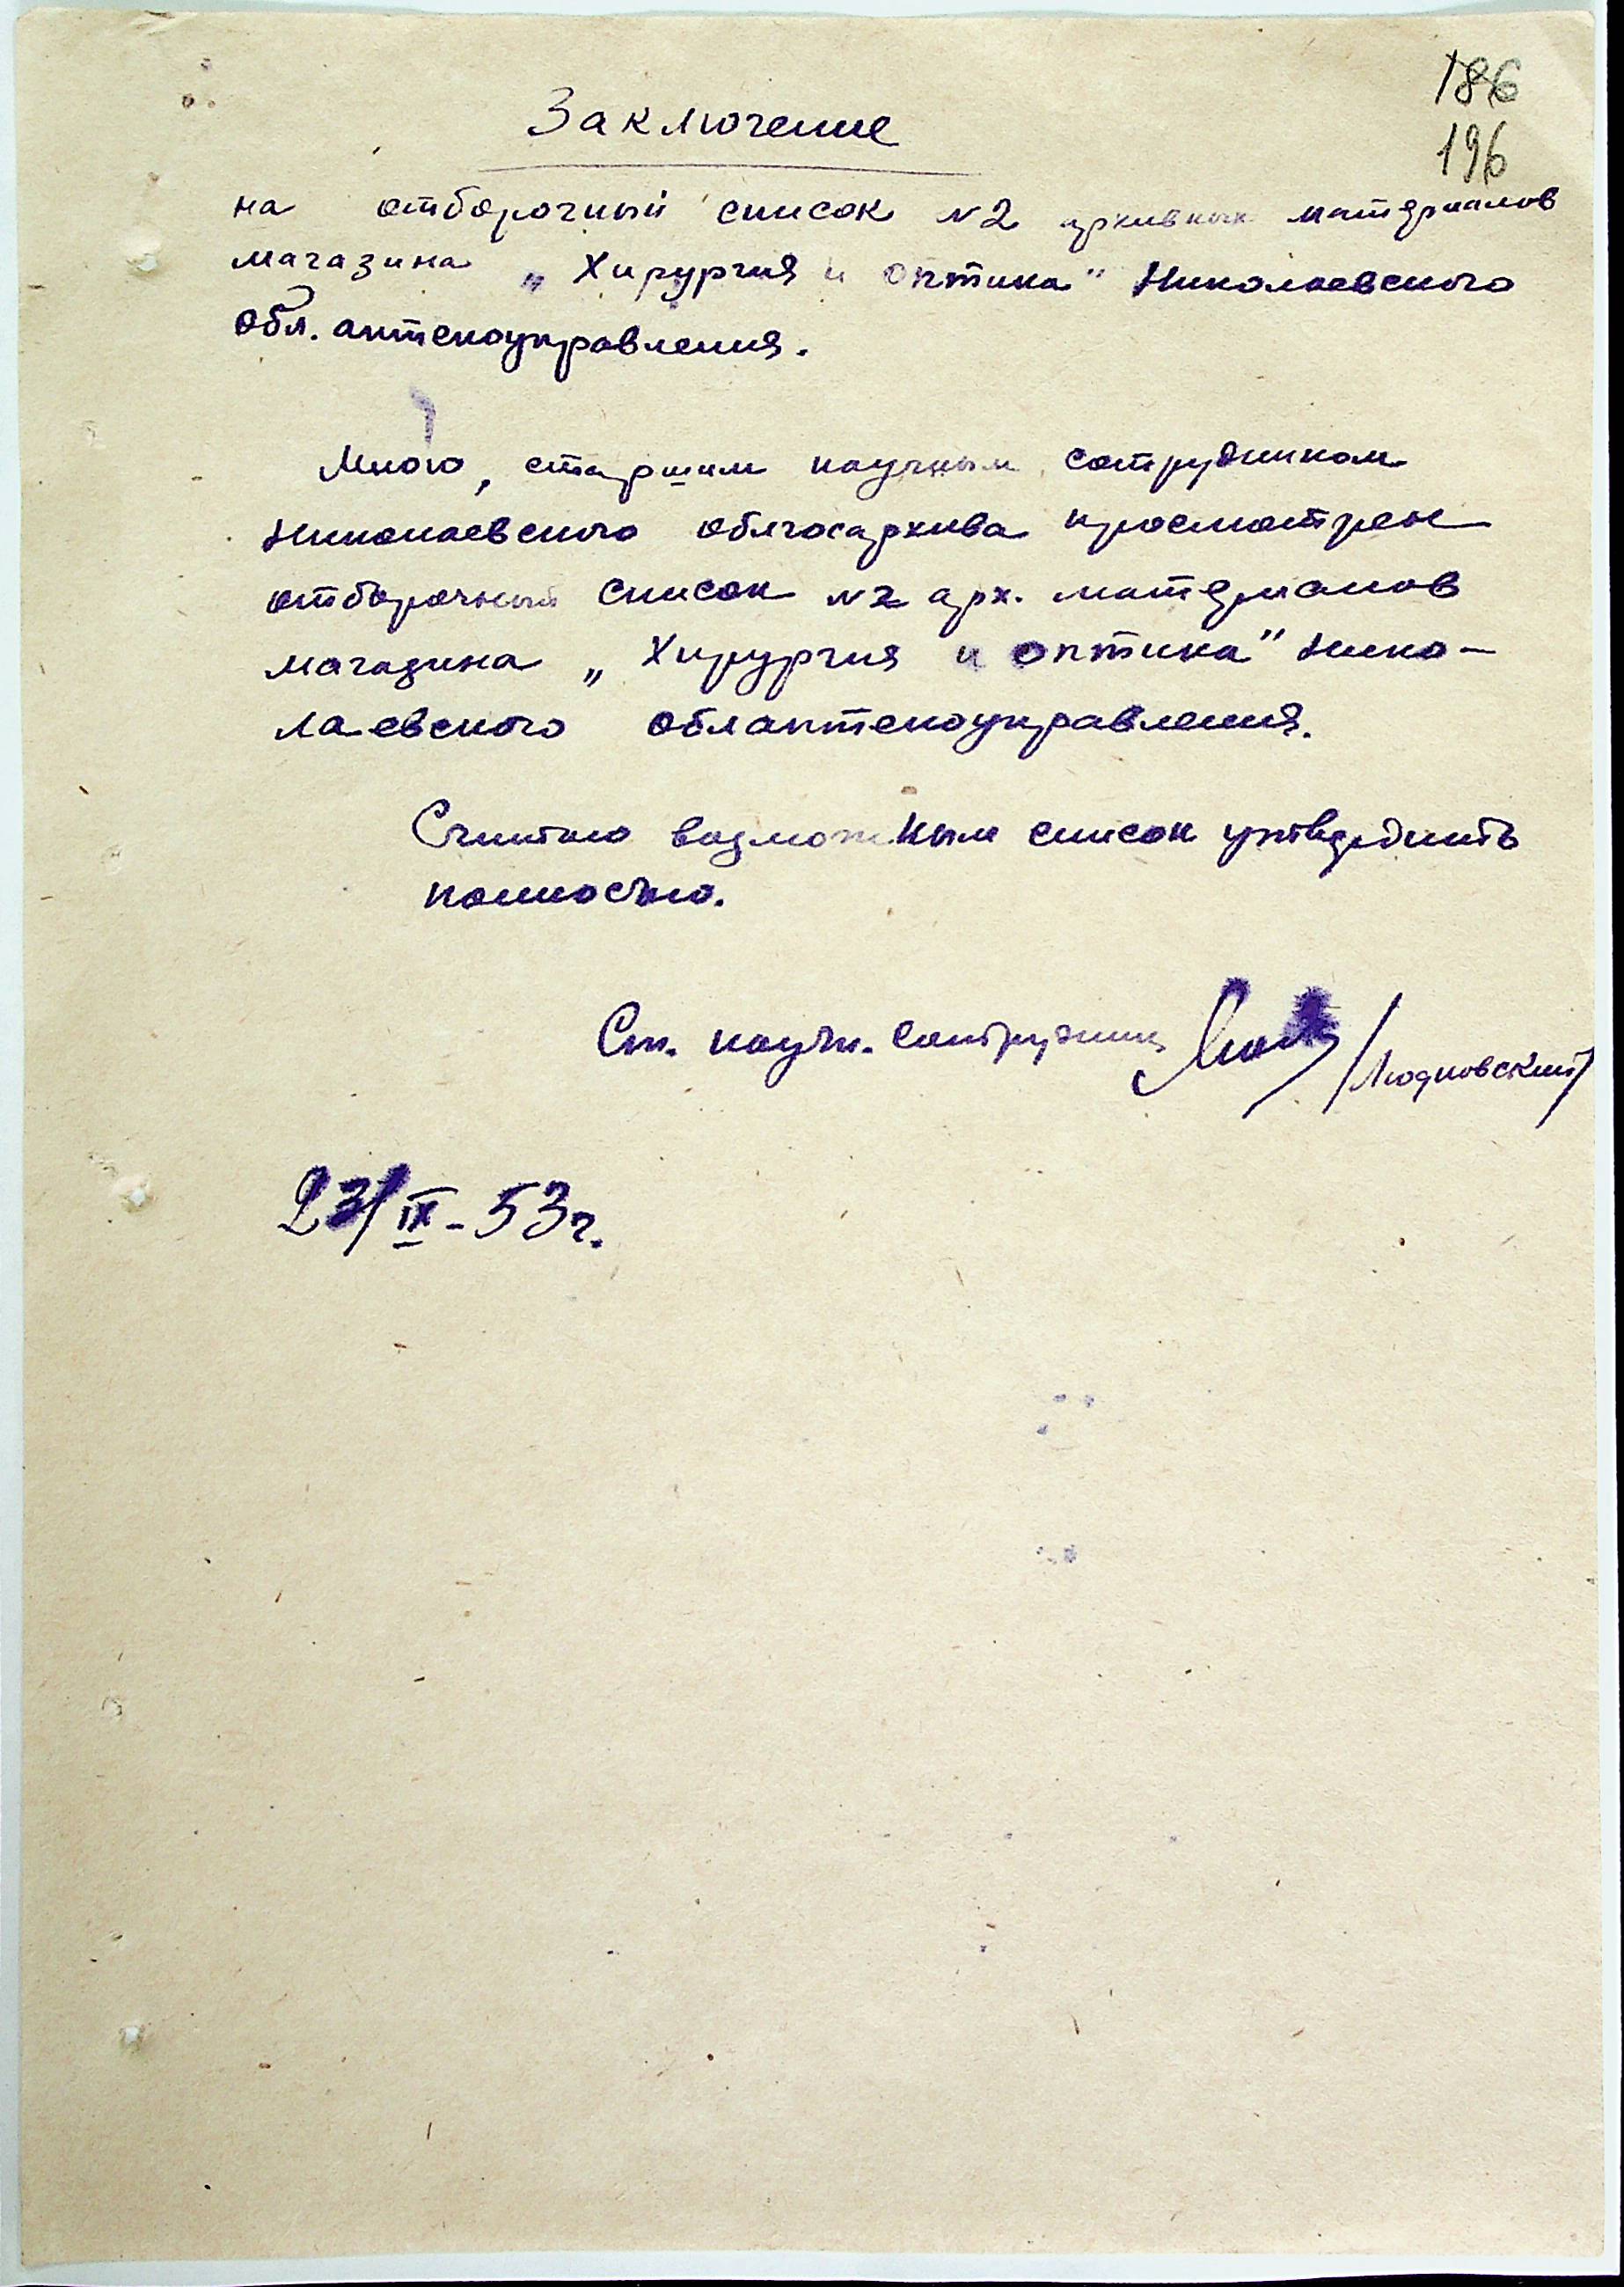 186
196
Заключение
на отборочный список №2 архивных материалов
магазина „Хирургия и оптика" Николаевского
Обл. аптекоуправления.
Мною, старшим научным сотрудником
Николаевского облгосархива просмотрен
отборочный список №2 арх. материалов
магазина „Хирургия и оптика" Нико-
лаевского облаптекоуправления.
Считаю возможным список утвердить
полностью.
Ст. научн. сотрудник /Людковский/
23/IX-53г.